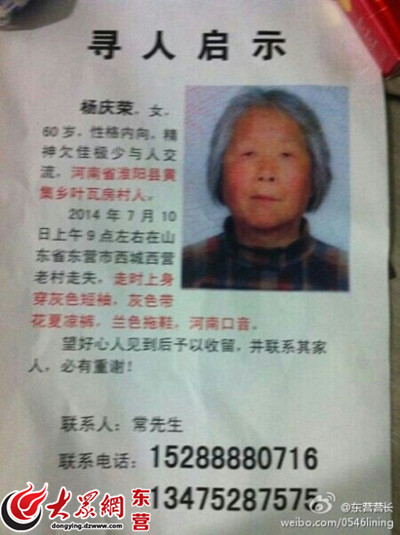 寻人启示
杨庆荣，女，
60岁，性格内向，精
神欠佳极少与人交
流，河南省淮阳县黄
集乡叶瓦房村人。
2014年7月10
日上午9点左右在山
东省东营市西城西营
老村走失，走时上身
穿灰色短袖，灰色带
花夏凉裤，兰色拖鞋，河南口音。
望好心人见到后予以收留，并联系其家
人，必有重谢！
联系人：常先生
联系电话：15288880716
13475287575
大众网 东营
dongying.dzwww.com
@东营营长
weibo.com/0546lining